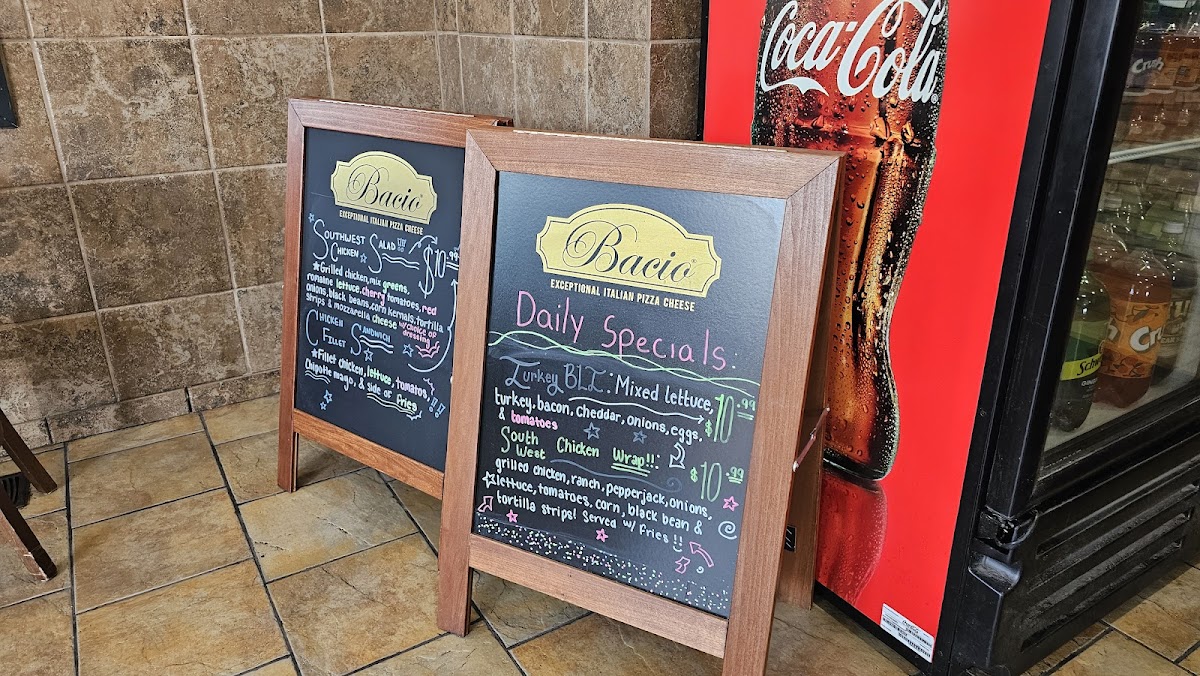 Bacio
EXCEPTIONAL ITALIAN PIZZA CHEESE
SOUTHWEST SALAD
CHICKEN
$10.99
★Grilled chicken, mix greens,
romaine lettuce, cherry tomatoes, red
onions, black beans, corn kernals, tortilla
strips & mozzarella cheese w/choice of
dressing
CHICKEN SANDWICH
FILLET
★Fillet chicken, lettuce, tomatoes,
Chipotle mayo, & side of fries
Bacio
EXCEPTIONAL ITALIAN PIZZA CHEESE
Daily Specials:
Turkey BLT: Mixed lettuce,
turkey, bacon, cheddar, onions, eggs,
& tomatoes
$10.99
South West Chicken Wrap!!:
$10.99
grilled chicken, ranch, pepperjack, onions,
lettuce, tomatoes, corn, black bean &
tortilla strips! Served w/ Fries!!
Coca-Cola
Crush